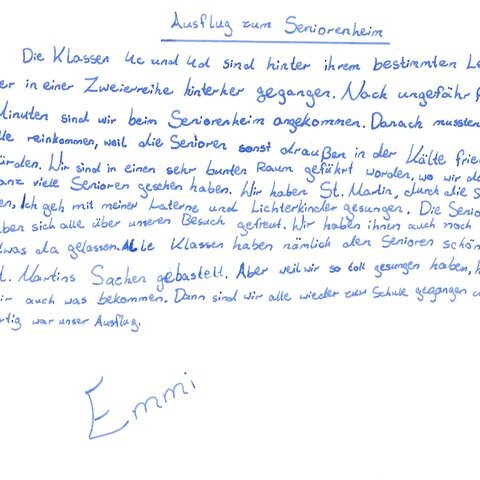 Ausflug zum Seniorenheim
Die Klassen 4c und 4d sind hinter ihrem bestimmten Le
er in einer Zweierreihe hinterher gegangen. Nach ungefähr f
Minuten sind wir beim Seniorenheim angekommen. Danach mussten
lle reinkommen, weil die Senioren sonst draußen in der Kälte frie
ürden. Wir sind in einen sehr bunten Raum geführt worden, wo wir da
anz viele Senioren gesehen haben. Wir haben St. Martin, durch die S
en, Ich geh mit meiner Laterne und Lichterkinder gesungen. Die Senio
aben sich alle über unseren Besuch gefreut. Wir haben ihnen auch noch
twas da gelassen. Alle Klassen haben nämlich den Senioren schön
t. Martins Sachen gebastelt. Aber weil wir so toll gesungen haben, h
ir auch was bekommen. Dann sind wir alle wieder zur Schule gegangen u
rtig war unser Ausflug.
Emmi